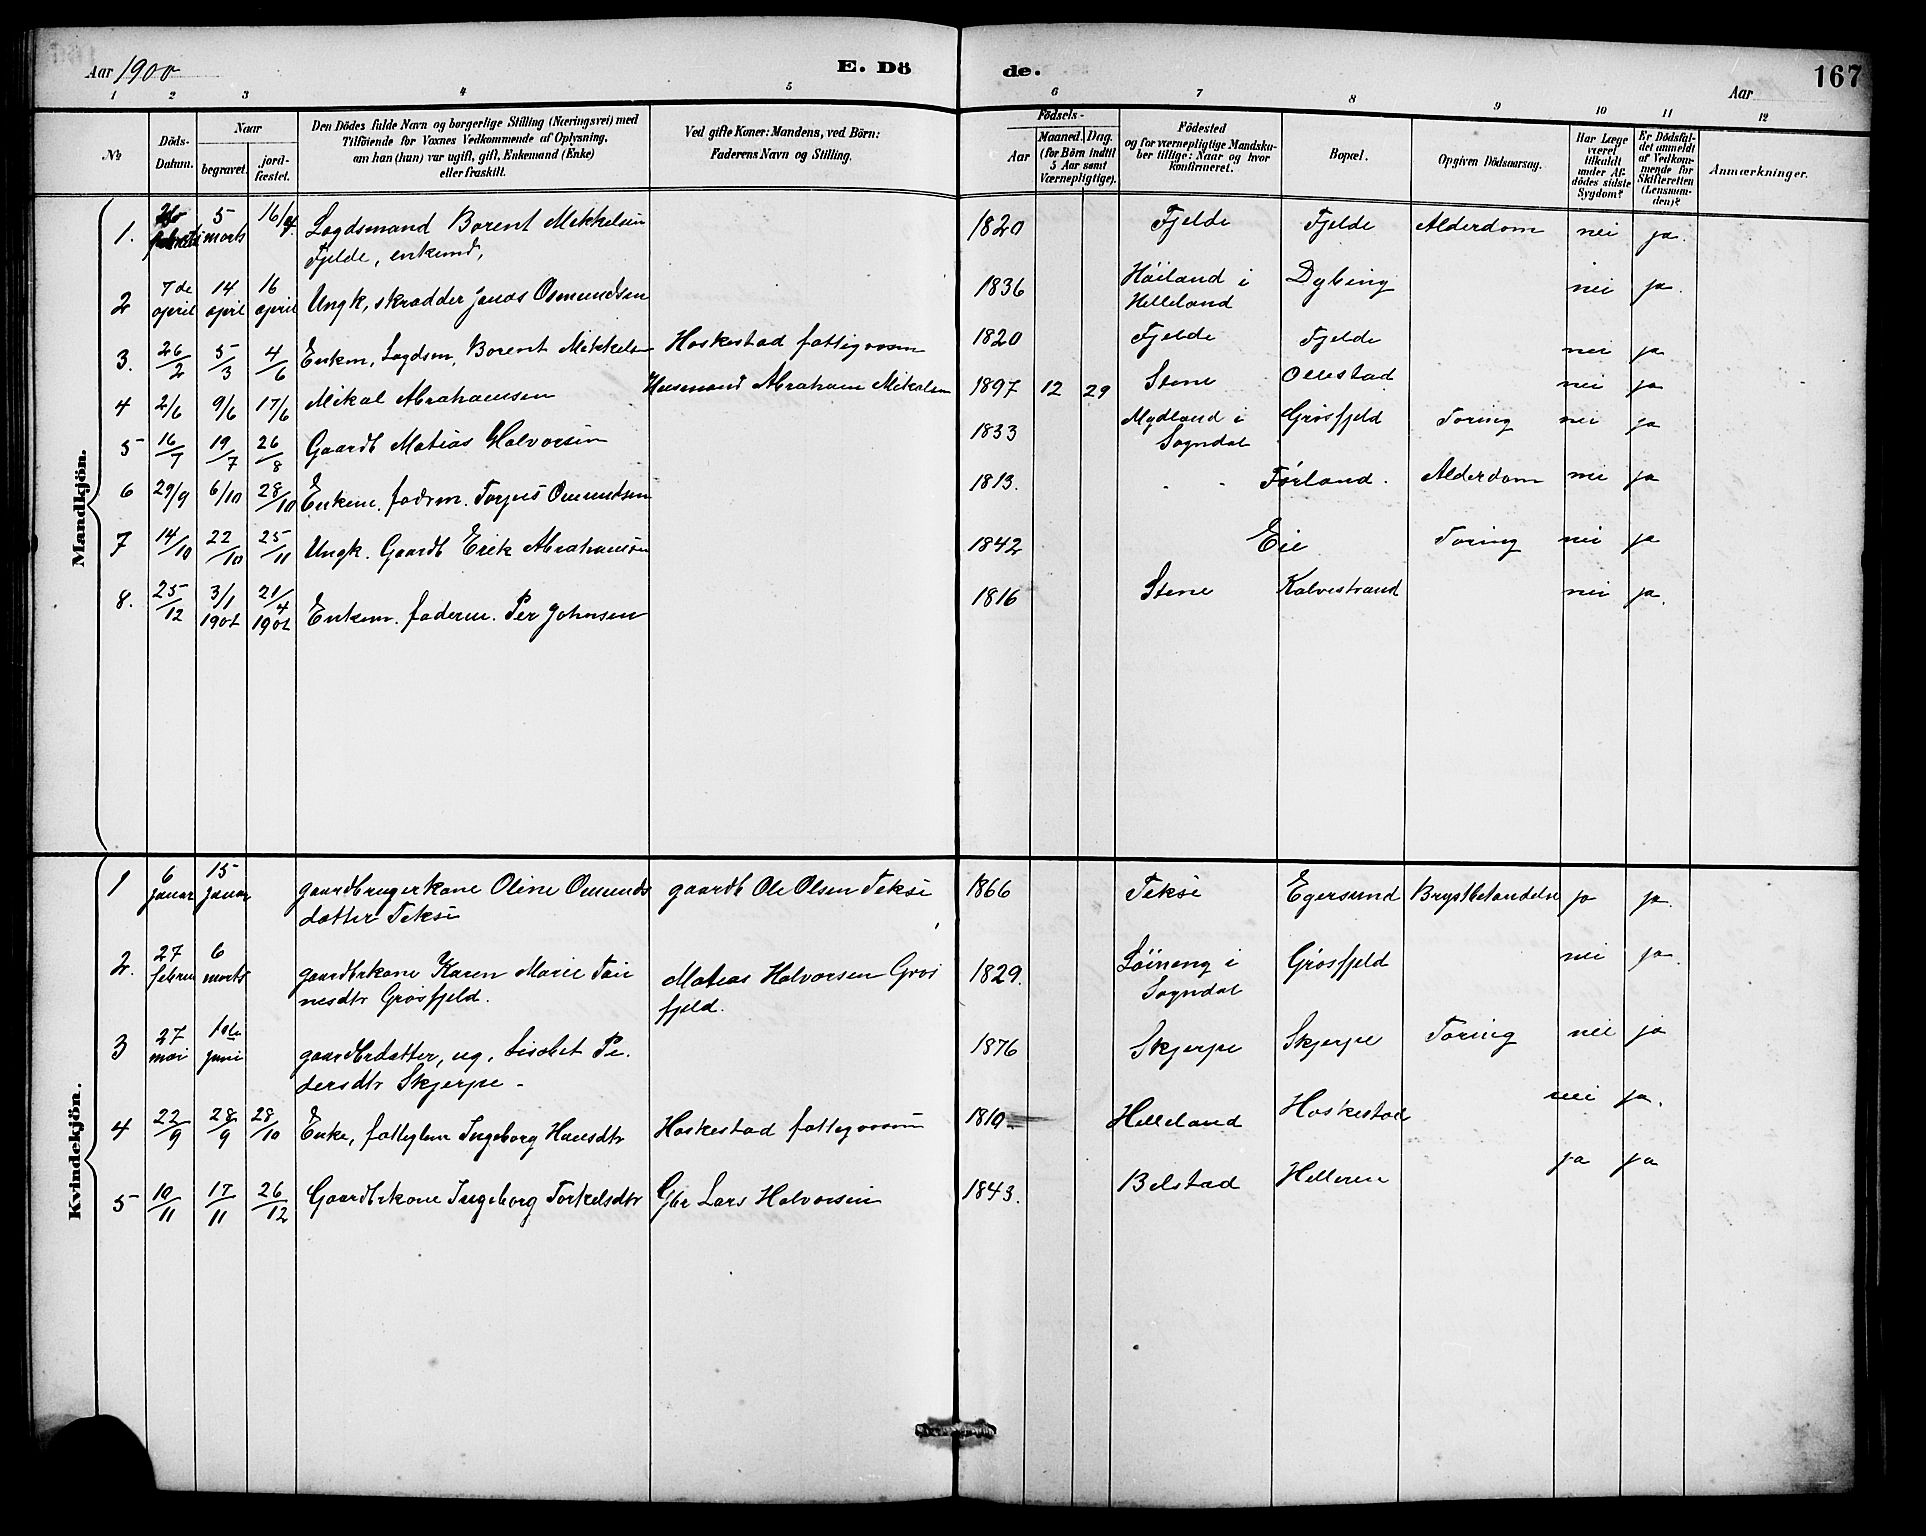 Aar 1900
E. Dö
de.
Aar
167
1 2 3 4 5 6 7 8 9 10 11 12
№
Döds-
Datum.
Naar
begravet.
jord-
fæstet.
Den Dödes fulde Navn og borgerlige Stilling (Næringsvei) med
Tilföiende for Voxnes Vedkommende af Oplysning,
om han (hun) var ugift, gift, Enkemand (Enke)
eller fraskilt.
Ved gifte Koner: Mandens, ved Börn:
Faderens Navn og Stilling.
Födsels-
Aar
Maaned. Dag.
(for Börn indtil
5 Aar samt
Værnepligtige).
Födested
og for værnepligtige Mandska-
ber tillige: Naar og hvor
konfirmeret.
Bopæl.
Opgiven Dödsaarsag.
Har Læge
været
tilkaldt
under Af-
dödes sidste
Sygdom?
Er Dödsfal-
det anmeldt
af Vedkom-
mende for
Skifteretten
(Lensman-
den)?
Anmærkninger.
Mandkjön.
1. 5 marts 16/4 Logdsmand Borent Mikkelsen 1820 Fjelde Fjelde Alderdom nei ja.
Fjelde, enkemd,
2 7de april 14 april 16 april Ungk, skrædder Jonas Osmundsen 1836 Höiland i Helleland Dybing nei ja.
3. 26/2 5/3 4/6 Enkm, Logdsm. Borent Mikkelsen Hoskestad fattigvæsen 1820 Fjelde Fjelde nei ja
4 2/6 9/6 17/6 Mikal Abrahamsen Husmand Abraham Mikalsen 1897 12 29 Stene Ollestad nei ja
5 16/7 19/7 26/8 Gaardb Matias Halvorsen 1833 Mydland i Sogndal Grøsfjeld Toring nei ja
6 29/9 6/10 28/10 Enkem. foderm. Torjus Omundsen 1813. Førland. Alderdom nei ja
7 14/10 22/10 25/11 Ungk. Gaardb Erik Abrahamsen 1842 Eie Toring nei ja
8. 25/12 3/1 1901 21/4 1901 Enkem. foderm. Per Johnsen 1816 Stene Kalvestrand nei ja.
Kvindekjön.
1 6 januar 15 januar gaardbrugerkone Oline Omunds gaardb Ole Olsen Teksé 1866 Teksé Egersund Brystbetændelse ja ja.
datter Teksé
2. 27 februar 6 marts gaardbrkone Karen Marie Tøn Matias Halvorsen Grøs 1829. Løineng i Sogndal Grøsfjeld nei ja.
nesdtr Grøsfjeld. fjeld.
3 27 mai 1ste juni gaardbrdatter, ug, Lisabet Pe. 1876 Skjerpe Skjerpe Toring nei ja
dersdtr Skjerpe -
4 22/9 28/9 28/10 Enke, fattiglem Ingeborg Hansdtr Hoskestad fattigvæsen 1810 Helleland Hoskestad nei ja.
5 10/11 17/11 26/12 Gaardbrkone Ingeborg Torkelsdtr Gbr Lars Halvorsen 1843. Belstad Helleren ja ja